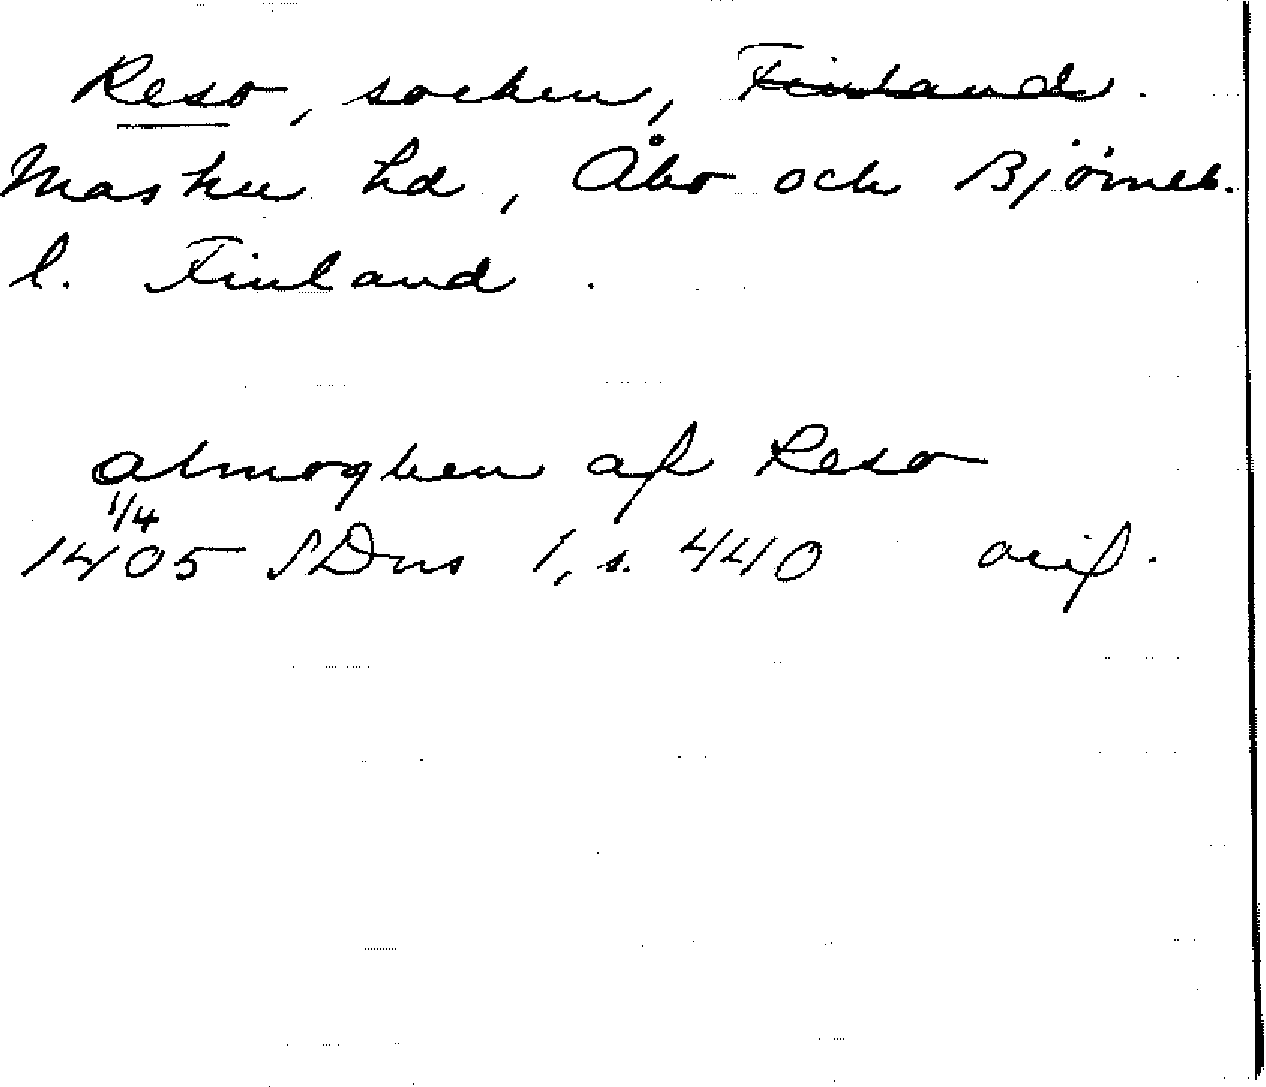 Reso, socken, Finland.
Masku hd, Åbo och Björneb.
l. Finland.
almoghen aff Reso
1/4
1405 SDns 1, s. 440 avif.